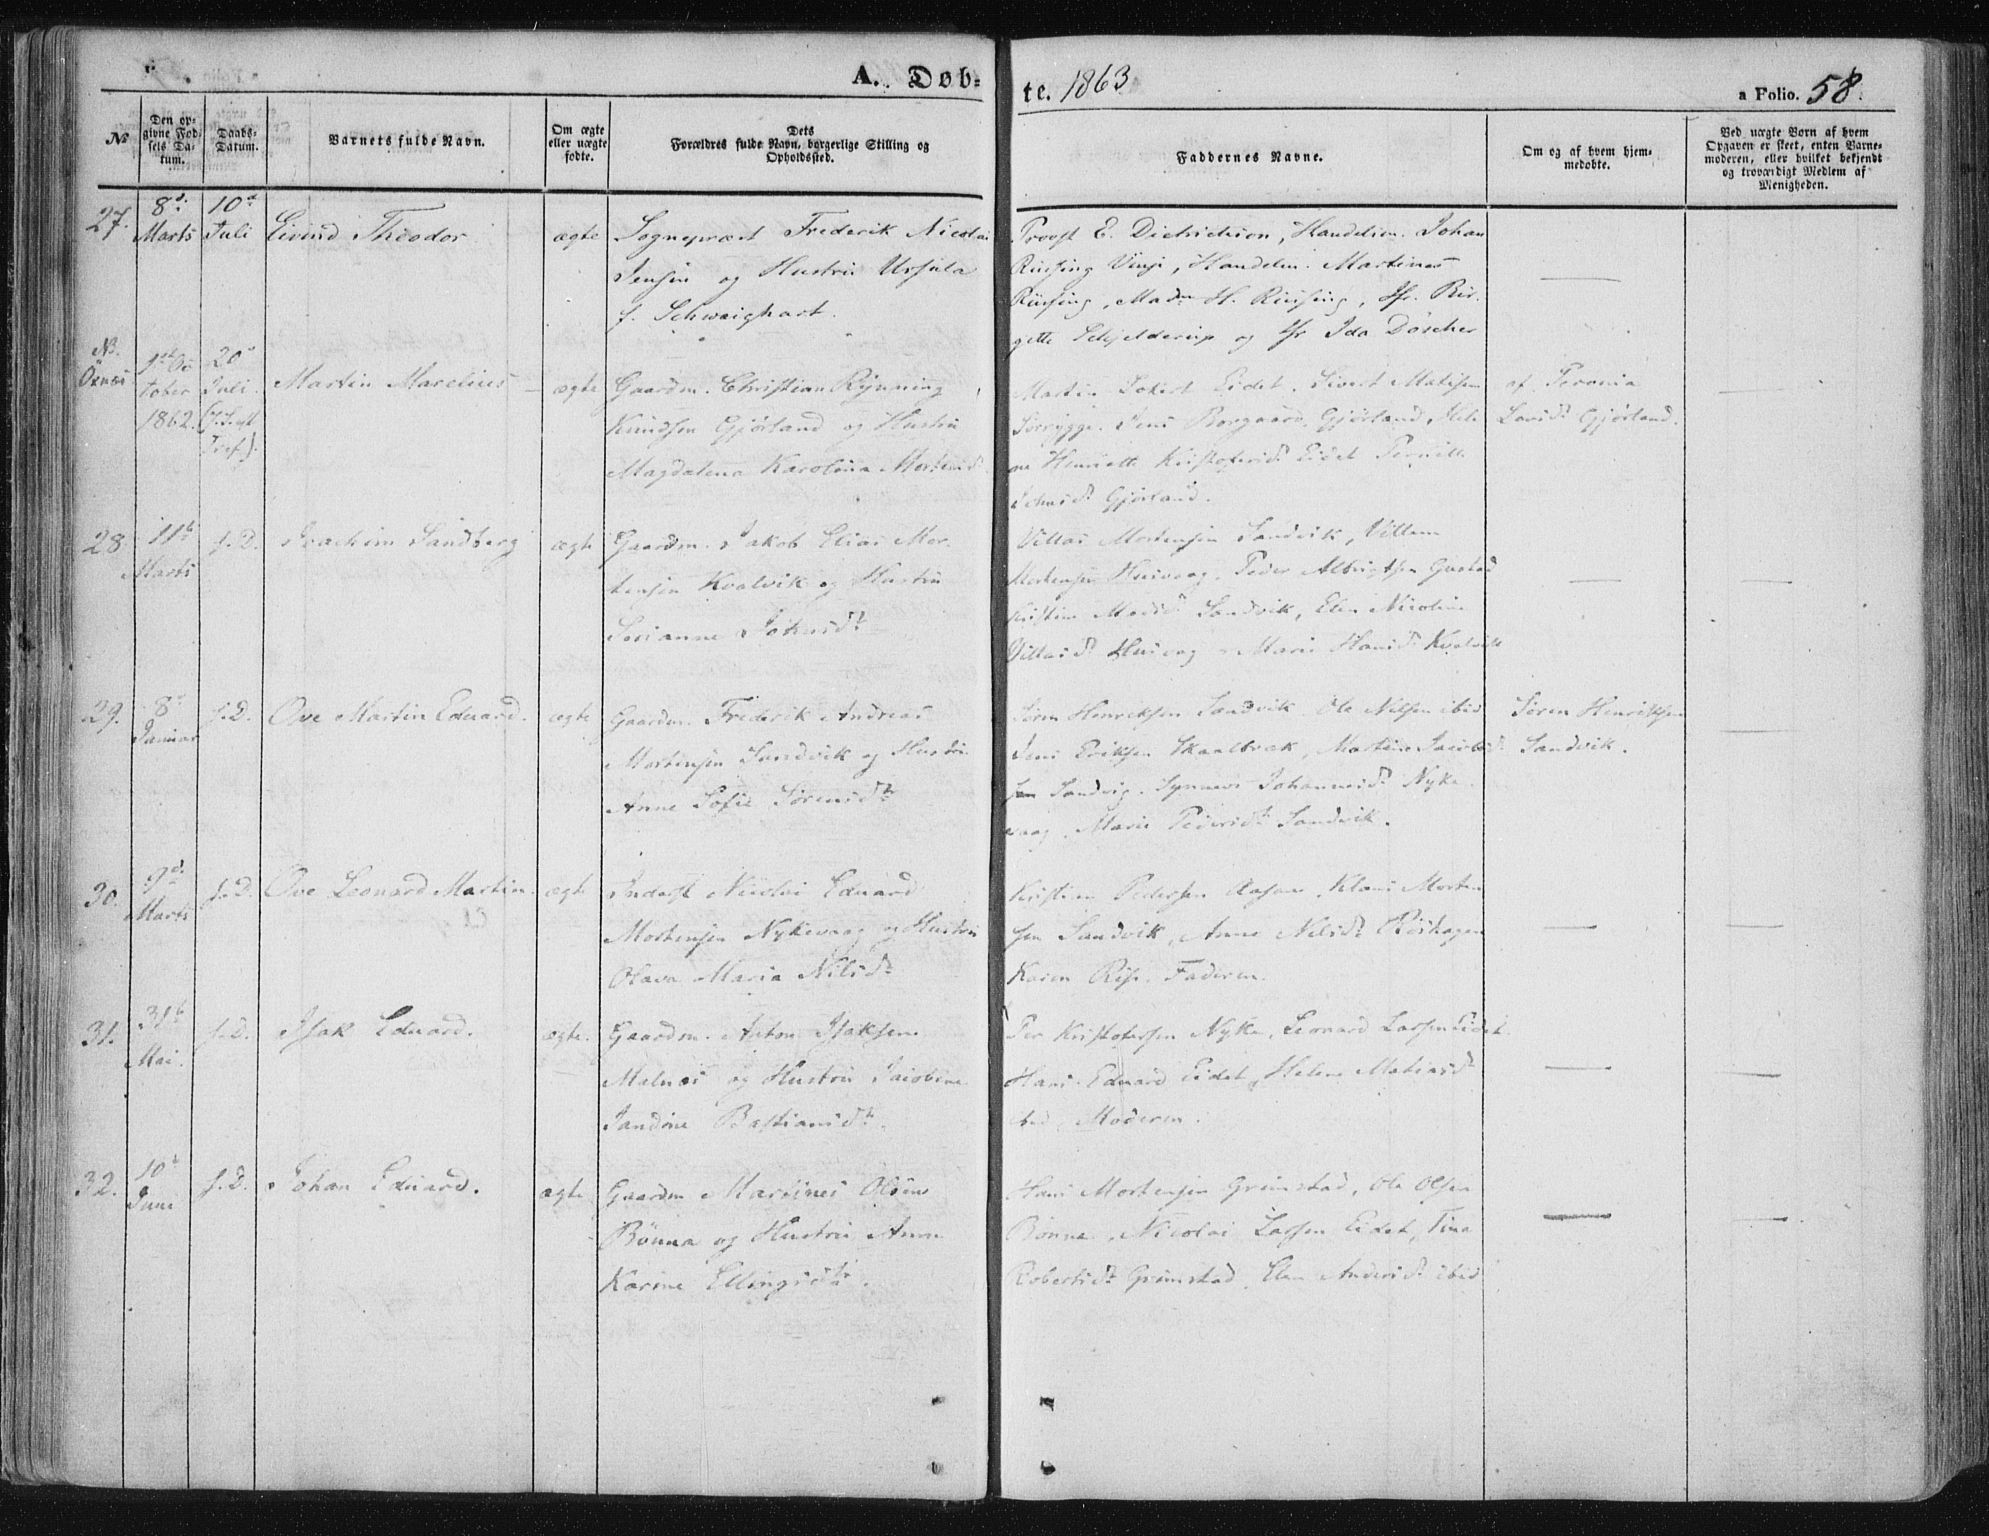 A. Døb-
te. 1863
a Folio. 58.
№
Den op-
givne Fød-
sels Da-
tum.
Daabs-
Datum.
Barnets fulde Navn.
Om ægte
eller uægte
fødte.
Dets
Forældres fulde Navn, borgerlige Stilling og
Opholdssted.
Faddernes Navne.
Om og af hvem hjem-
medøbte.
Ved uægte Børn af hvem
Opgaven er skeet, enten Barne-
moderen, eller hvilket bekjendt
og troværdigt Medlem af
Menigheden.
27.
8d.
Marts
10d
Juli
Eivind Theodor
ægte
Sognepræst Frederik Nicolai
Jensen og Hustru Ursula
f. Schwaighart.
Provst E. Dietrichson, Handelsm. Johan
Vinje, Handelm. Martinus
, Madm H. , Jfr. Bir-
gette Schjelderup og Jfr Ida Döscher
NB.
Öxnæs
tober
1862.
20d
Juli
Martin Marelius
ægte
Gaardm. Christian Rynning
Knudsen Gjørland og Hustru
Magdalena Karolina
Martin Eidet. Sivert Matisen
Jens Borgaard Gjørland, Hele-
ne Henriette Kristofersdt. Eidet Pernille
Gjørland.
af Peronia
Gjørland.
28.
11t
Marts
s.D.
Joachim Sandberg
ægte
Gaardm. Jakob Elias Mor-
tensen Kvalvik og Hustru
Serianne Johnsdt.
Villas Mortensen Sandvik, Villum
Mortensen Husvaag. Peder Albrigtsen
Kristine Sandvik, Elen Nicoline
Villasdt. Husvaag. Maria Hansdt. Kvalvik
29.
8d
Januar
s.D.
Ove Martin Eduard.
ægte
Gaardm. Frederik Andreas
Mortensen Sandvik og Hustru
Anne Sofie Sørensdt.
Søren Henriksen Sandvik Ole Nilsen ibid
Jens Eriksen Skaalbræk, Martin
Sandvig. Johannesdt. Nyke-
vaag. Marie Pedersdt. Sandvik.
Søren Henriksen
Sandvik.
30.
9d.
Marts
s.D.
Ove Leonard Martin.
ægte
Inderst Nicolai Eduard
Mortensen Nykevaag og Hustru
Olava Maria Nilsdt.
Kristian Pedersen Aasan, Klaus Morten-
sen Sandvik, Anne Nilsdt. Röshagen
Karen Faderen.
31.
31t
Mai.
s.D.
Isak Eduard.
ægte.
Gaardm. Anton Isaksen
Malnes og Hustru Jacobine
Jandine Bastiansdt.
Per Kristofersen Nyke, Leonard Larsen Eidet
Hans Eduard Eidet, Helene Matiasdt
ibid. Moderen.
32.
10t
Juni
s.D.
Johan Eduard.
ægte
Gaardm Martines Olsen
Bönna og Hustru Anne
Karine Ellingsdt.
Hans Mortensen Grimstad, Ole Olsen
Bönna, Nicolai Larsen Eidet, Tina
Robertsdt. Grimstad, Elen Andersdt. ibid